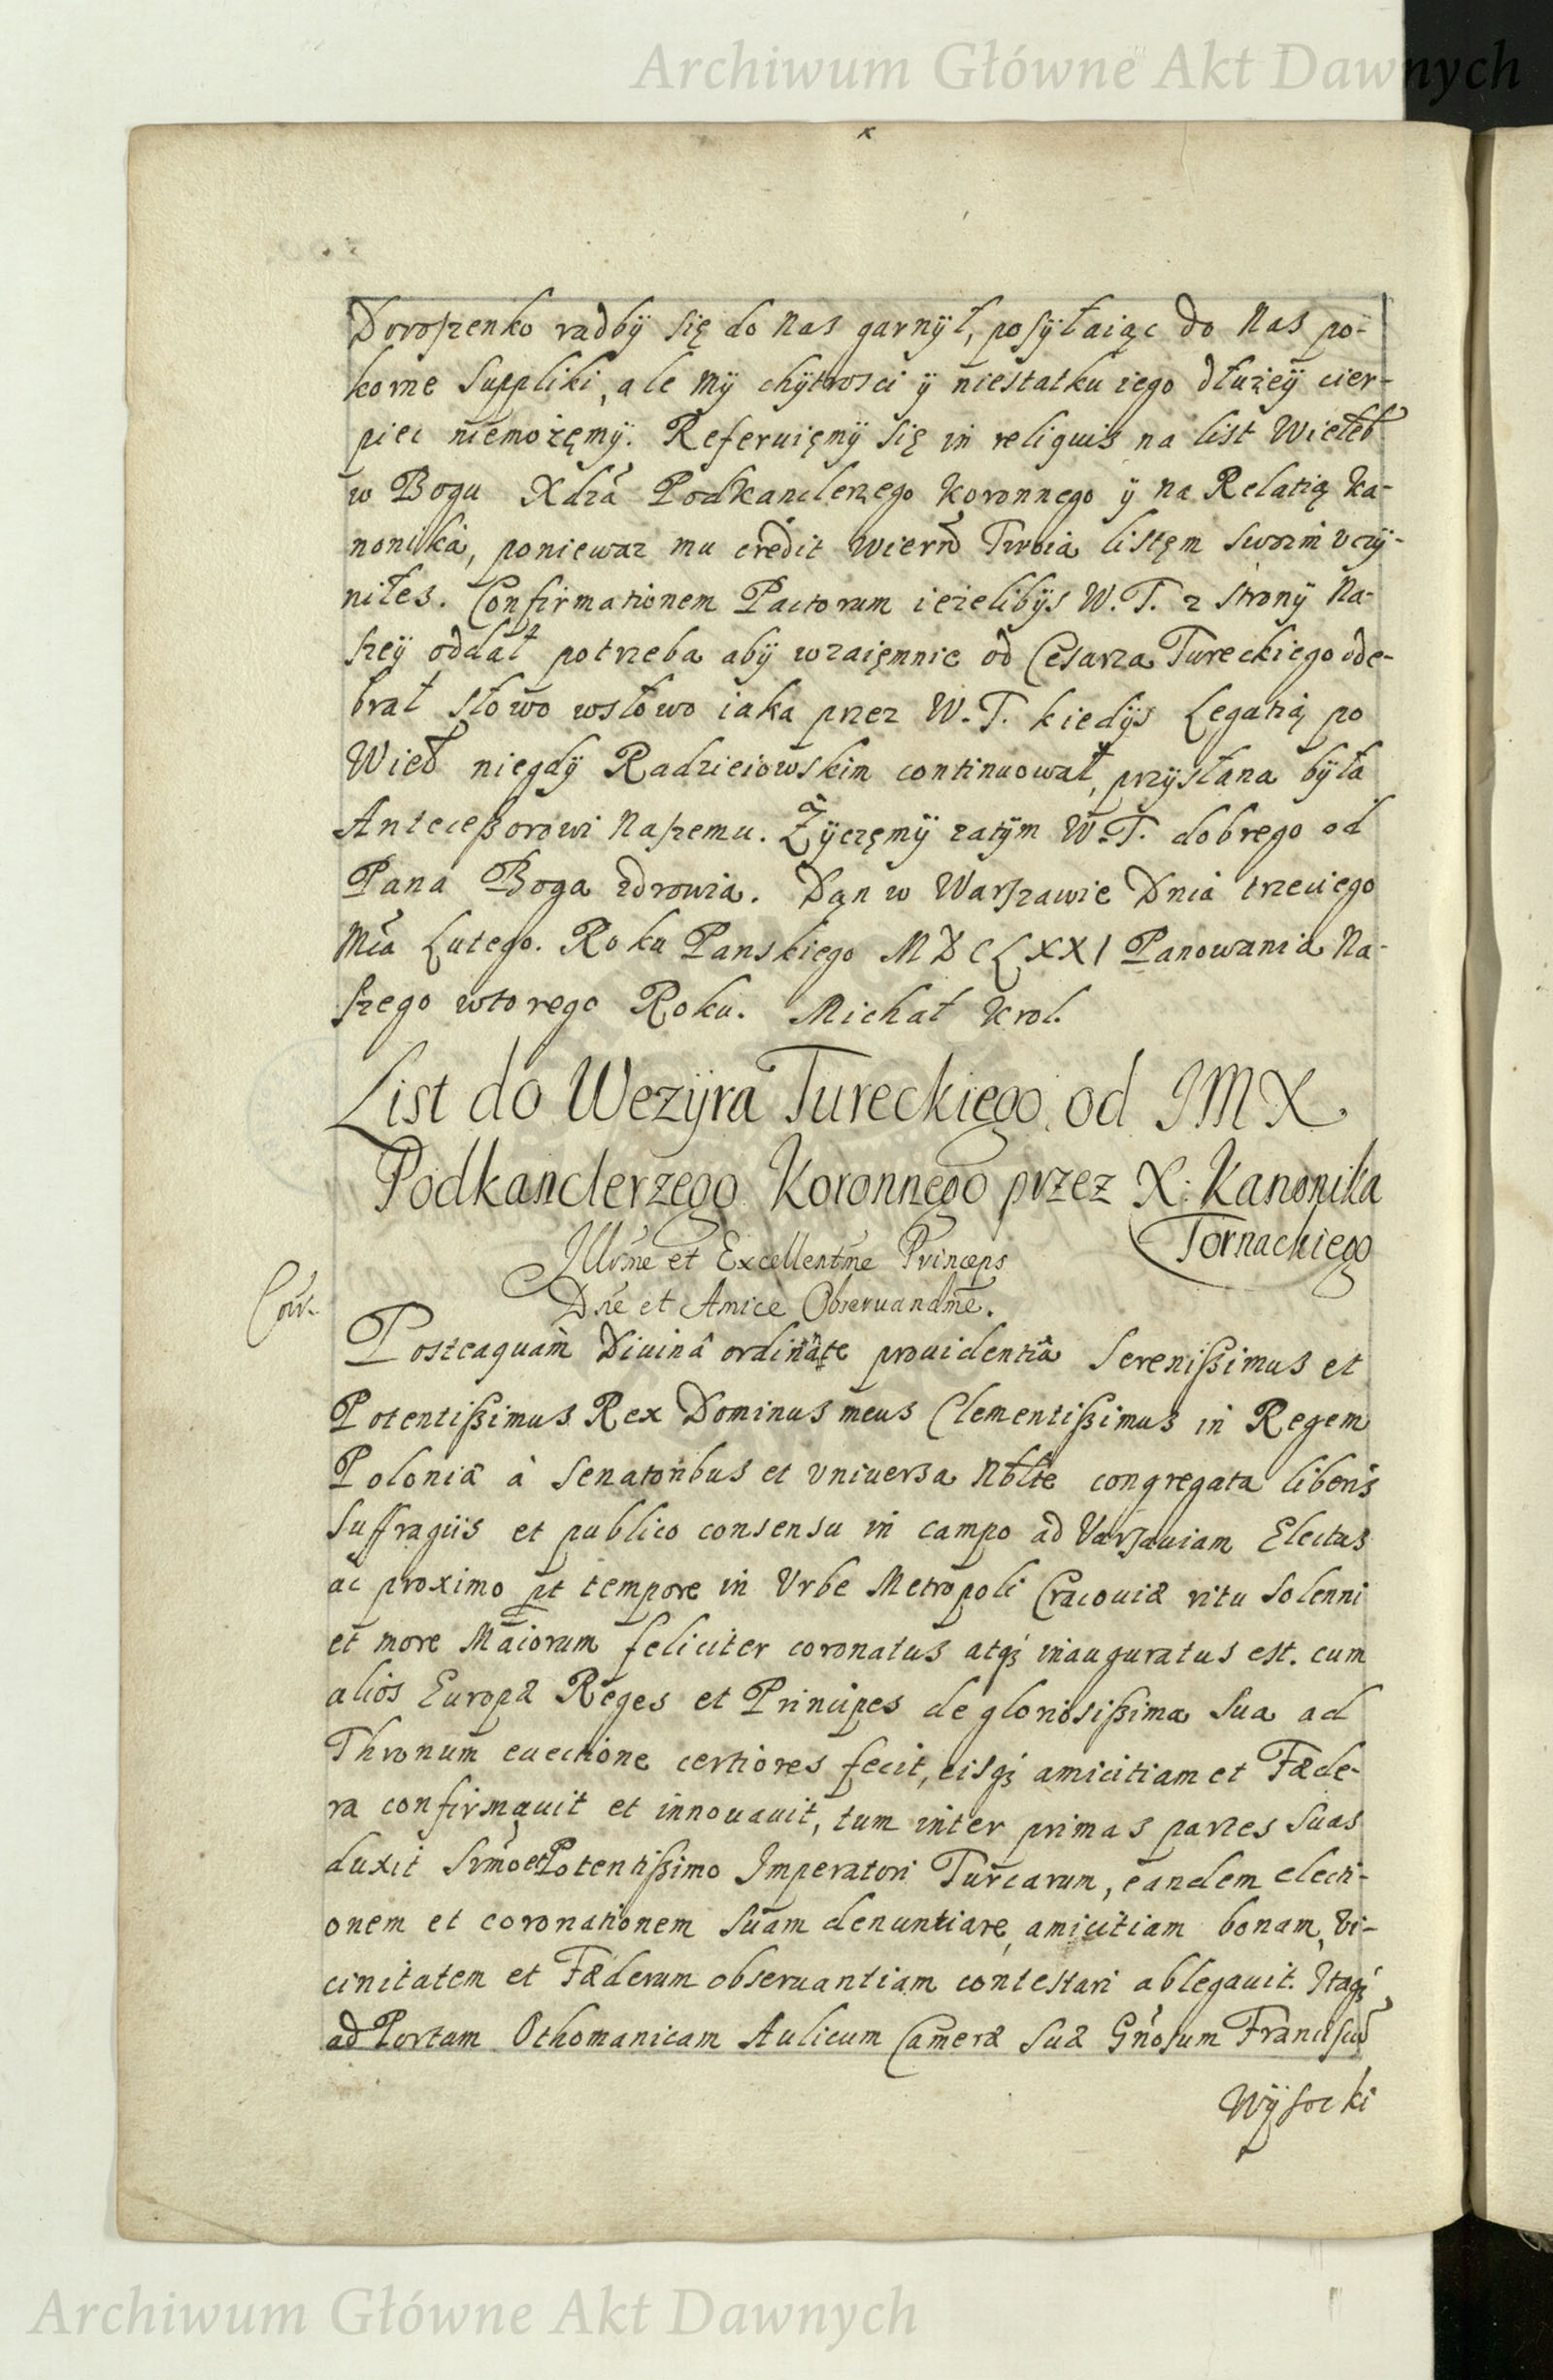 Archiwum Główne Akt Dawnych
Doroszenko radbÿ się do Nas garnÿł, posÿłaiąc do Nas po-
korne Suppliki, ale mÿ chÿtrosci ÿ niestatku iego dłużeÿ cier-
piec niemożęmÿ. Referuięmÿ się in reliquis na list Wieleb
w Bogu Xdza Podkanclerzego Koronnego ÿ na Relatią Ka-
nonika, poniewaz mu credit Wiern Twoia listęm swoim vczÿ-
niłes. Confirmationem Pactorum ieżelibÿs W. T. z strony Na-
szeÿ oddał potrzeba abÿ wzaięmnie od Cesarza Tureckiego ode-
brał słowo wsłowo iaka przez W. T. kiedÿs Legatią po
Wieł niegdÿ Radzieiowskim continuował, przÿsłana bÿła
Antecessorowi Naszemu. Żÿczęmÿ zatÿm W. T. dobrego od
Pana Boga zdrowia. Dan w Warszawie Dnia trzeciego
Mca Lutego. Roku Panskiego MDCLXXI Panowania Na-
szego wtorego Roku. Michał Krol.
List do Wezÿra Tureckiego od JMX
Podkanclerzego Koronnego przez X. Kanonika
Tornackiego
Illrme et Excellentme Princeps
Dne et Amice Obseruandme.
Posteaquam Diuinâ ordinâte prouidentiâ Serenissimus et
Potentissimus Rex Dominus meus Clementissimus in Regem
Poloniæ à Senatoribus et vniuersa Nblte congregata liberis
Suffragiis et publico consensu in campo ad Varsauiam Electus
ac proximo pt tempore in Vrbe Metropoli Cracouiæ ritu Solenni
et more Maiorum feliciter coronatus atq; inauguratus est. cum
alios Europæ Reges et Principes de gloriosissima Sua ad
Thronum euectione certiores fecit, eisq; amicitiam et Fæde-
ra confirmauit et innouauit, tum inter primas partes Suas
duxit Srmo et Potentissimo Imperatori Turcarum, eandem electi-
onem et coronationem Suam denuntiare, amicitiam bonam, vi-
cinitatem et Fæderum obseruantiam contestari ablegauit. Itaq;
ad Portam Othomanicam Aulicum Cameræ Suæ Gnosum Franciscū
Wÿsocki
Archiwum Główne Akt Dawnych